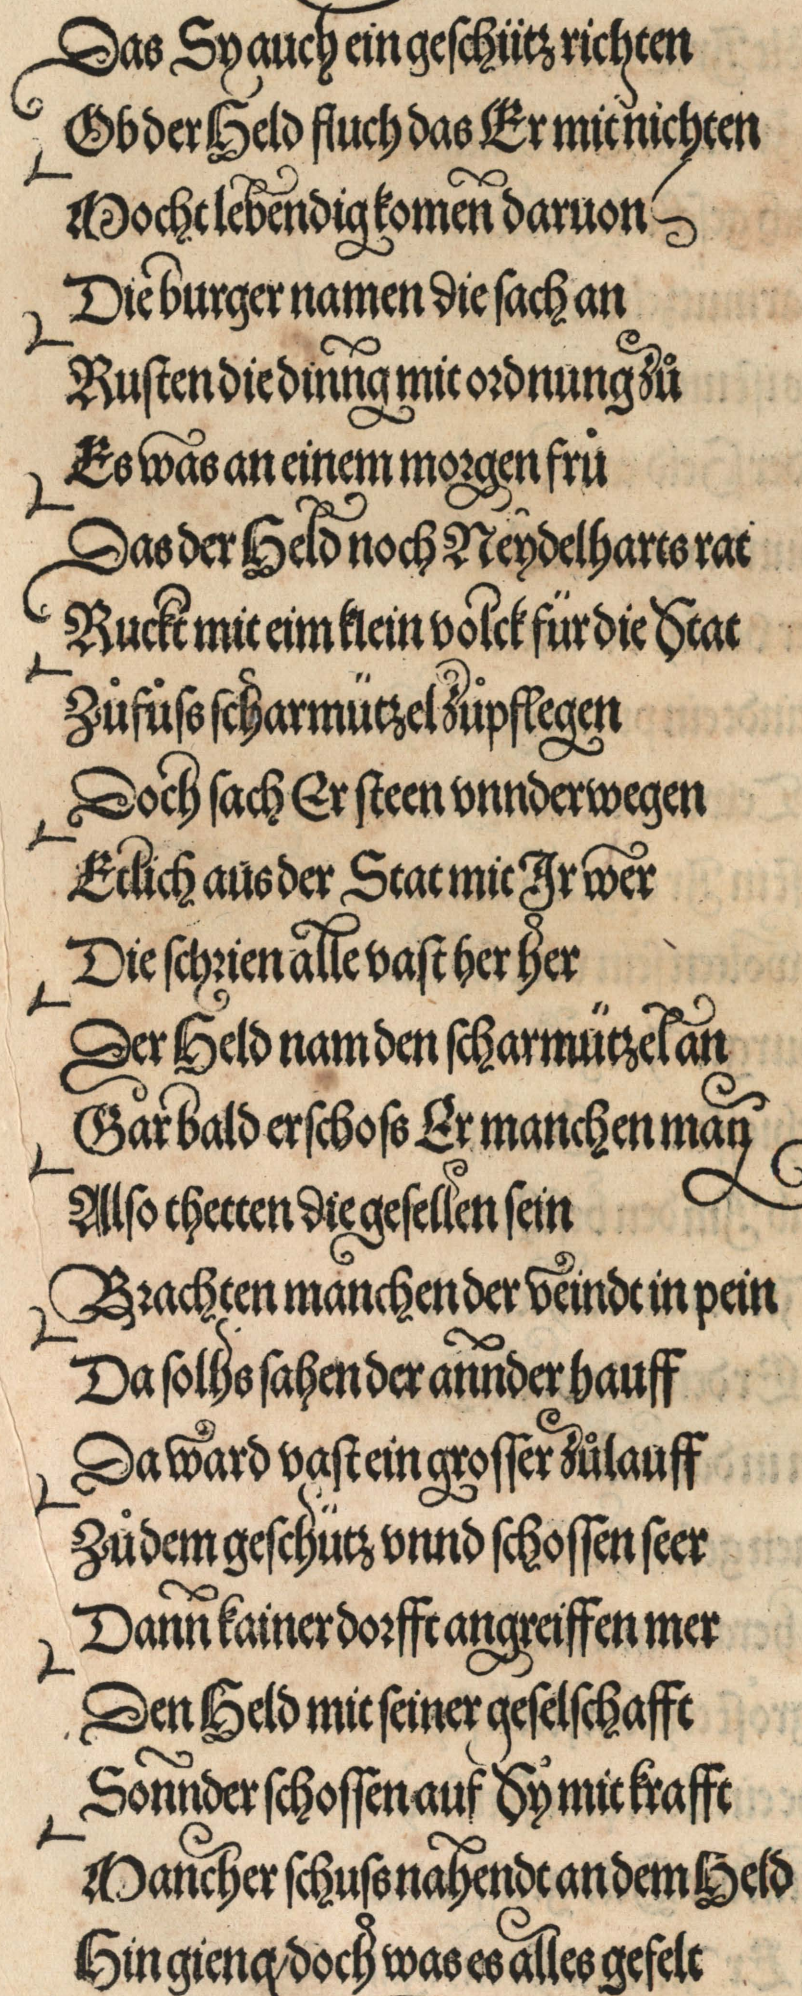 Das Sy auch ein geschütz richten
Ob der Held fluch das Er mit nichten
Mocht lebendig komen daruon
Die burger namen die sach an
Rusten die dinng mit ordnung zů
Es was an einem morgen frů
Das der Held noch Neydelharts rat
Ruckt mit eim klein volck für die Stat
Zůfůss scharmützel zůpflegen
Doch sach Er steen vnnderwegen
Etlich aus der Stat mit Ir wer
Die schrien alle vast her her
Der Held nam den scharmützel an
Gar bald erschoss Er manchen man
Also thetten die gesellen sein
Brachten manchen der veindt in pein
Da solhs sahen der annder hauff
Da ward vast ein grosser zůlauff
Zů dem geschütz vnnd schossen seer
Dann kainer dorfft angreiffen mer
Den Held mit seiner geselschafft
Sonnder schossen auf Sy mit krafft
Mancher schuss nahendt an dem Held
Hin gieng/doch was es alles gefelt